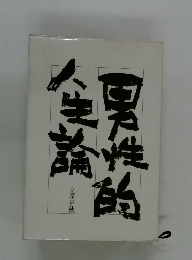 男性的
人生論